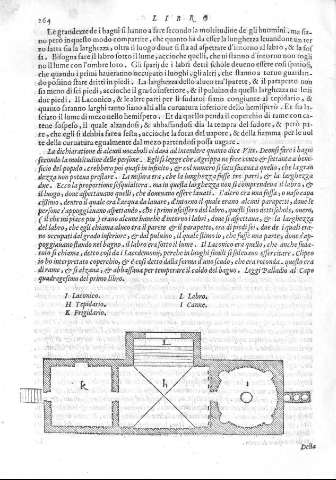 264 LIBRO
Le grandezze de i bagni si hanno a fare secondo la moltitudine de gli huomini, ma sia-
no però in questo modo compartite, che quanto ha da esser la lunghezza leuandone un ter-
zo fatta sia la larghezza, oltra il luogo doue si sta ad aspettare d'intorno al labro, & la fos
sa. Bisogna fare il labro sotto il lume, accioche quelli, che ui stanno d'intorno non togli-
no il lume con l'ombre loro. Gli spacij de i labri detti schole deueno essere cosi spatiosi,
che quando i primi haueranno occupato i luoghi, gli altri, che stanno a torno guardan-
do possino stare dritti in piedi. La larghezza dello alueo tra'l parete, & il parapetto non
sia meno di sei piedi, accioche il grado inferiore, & il puluino da quella larghezza ne leui
due piedi. Il Laconico, & le altre parti per li sudatoi siano congiunte al tepidario, &
quanto saranno larghi tanto siano alti alla curuatura inferiore dello hemispero. Et sia la-
sciato il lume di mezo nello hemispero. Et da quello penda il coperchio di rame con ca-
tene sospeso, il quale alzandosi, & abbassandosi dia la tempra del sudore, & però pa-
re, che egli si debbia farla a sesta, accioche la forza del uapore, & della fiamma per le uol
te della curuatura egualmente dal mezo partendosi possa uagare.
La dichiaratione di alcuni uocaboli ci dara ad intendere quanto dice Vitr. Deonsi fare i bagni
secondo la moltitudine delle persone. Egli si legge che Agrippa ne fece cento & settanta a benefi-
cio del popolo, crebbero poi quasi in infinito, & col numero si fece la spesa anche quello, che la gran
dezza non poteua prestare. La misura era, che la lunghezza fusse tre parti, & la larghezza
due. Ecco la proportione sesquialtera. ma in quella larghezza non si comprendeua il labro, &
il luogo, doue aspettauano quelli, che doueuano essere lauati. l'altra era una fossa, o naso capa
cissimo, dentro il quale era l'acqua da lauare, d'intorno il quale erano alcuni parapetti, doue le
persone s'appoggiauano aspettando, che i primi uscissero del labro, questi sono detti schole, ouero,
(il che a me piu piace) erano alcune banche d'intorno i labri, doue si aspettaua, & la larghezza
del labro, che egli chiama alueo tra il parete & il parapetto, era di piedi sei, due de i quali era-
no occupati dal grado inferiore, & dal puluino, il quale stimo io, che fusse una parte, doue s'ap-
poggiauano stando nel bagno. il labro era sotto il lume. Il Laconico era quello, che anche suda-
toio si chiama, detto cosi da i Lacedemoni, perche in luoghi simili si soleuano essercitare. Clipeo
io ho interpretato coperchio, & è cosi detto dalla forma d'uno scudo, che era rotonda. questo era
di rame, & si alzaua, & abbassaua per temperare il caldo del bagno. Leggi Palladio al Capo
quadragesimo del primo libro.
I Laconico. L Labro.
H Tepidario. I Canne.
K Frigidario.
L
k h
Della